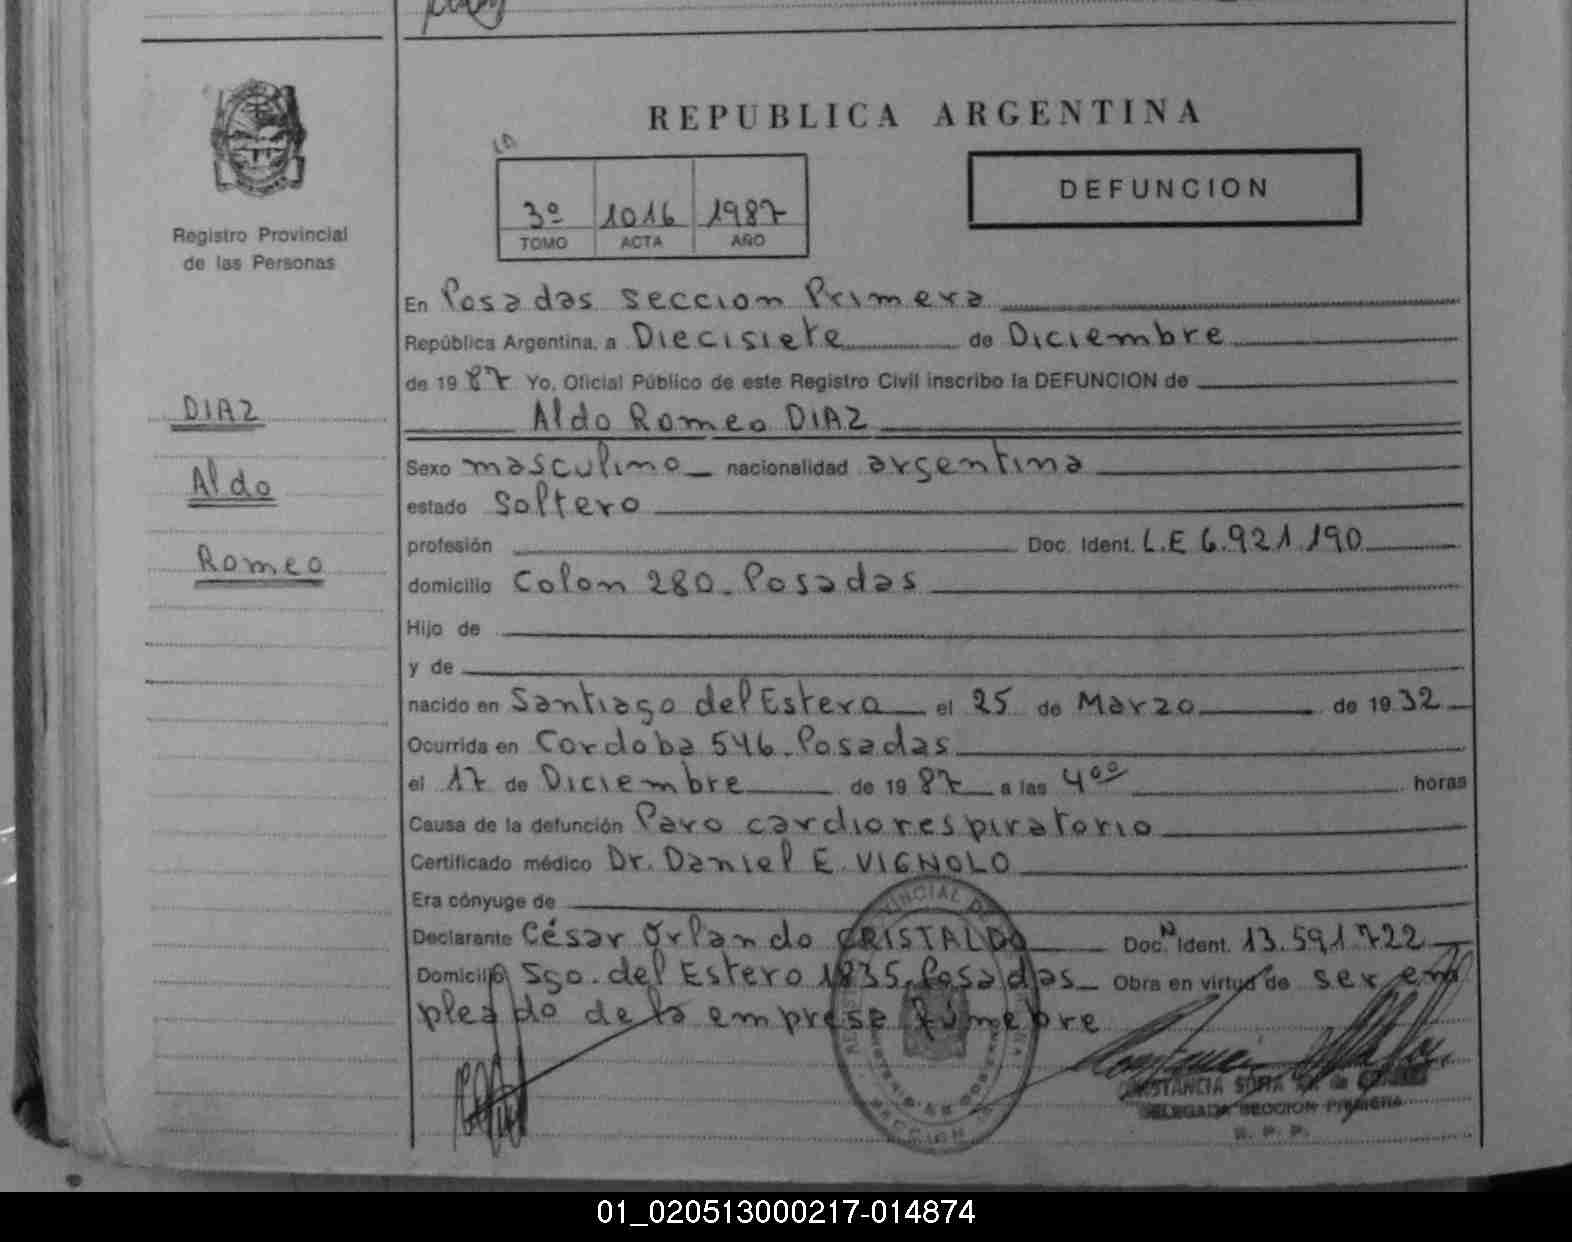 REPUBLICA ARGENTINA
DEFUNCION
3º 1016 1987
TOMO ACTA AÑO
Registro Provincial
de las Personas
DIAZ
Aldo
Romeo
En Posadas seccion Primera
República Argentina, a Diecisiete de Diciembre
de 1987 Yo, Oficial Público de este Registro Civil inscribo la DEFUNCION de
Aldo Romeo DIAZ
Sexo masculino nacionalidad argentina
estado Soltero
profesión Doc. Ident. L.E 6.921.190
domicilio Colon 280. Posadas
Hijo de
y de
nacido en Santiago del Estero el 25 de Marzo de 1932
Ocurrida en Cordoba 546. Posadas
el 17 de Diciembre de 1987 a las 4ºº horas
Causa de la defunción Paro cardiorespiratorio
Certificado médico Dr. Daniel E. VIGNOLO
Era cónyuge de
Declarante César Orlando CRISTALDO Doc. Ident. 13.591.722
Domicilio Sgo. del Estero 1835. Posadas Obra en virtud de ser em
pleado de la empresa fúnebre
CONSTANCIA SOFIA de
DELEGADA SECCION PRIMERA
R. P. P.
01_020513000217-014874